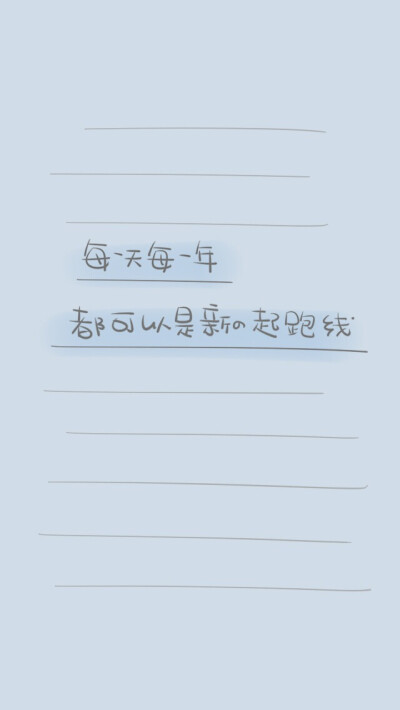 每一天每一年
都可以是新の起跑线